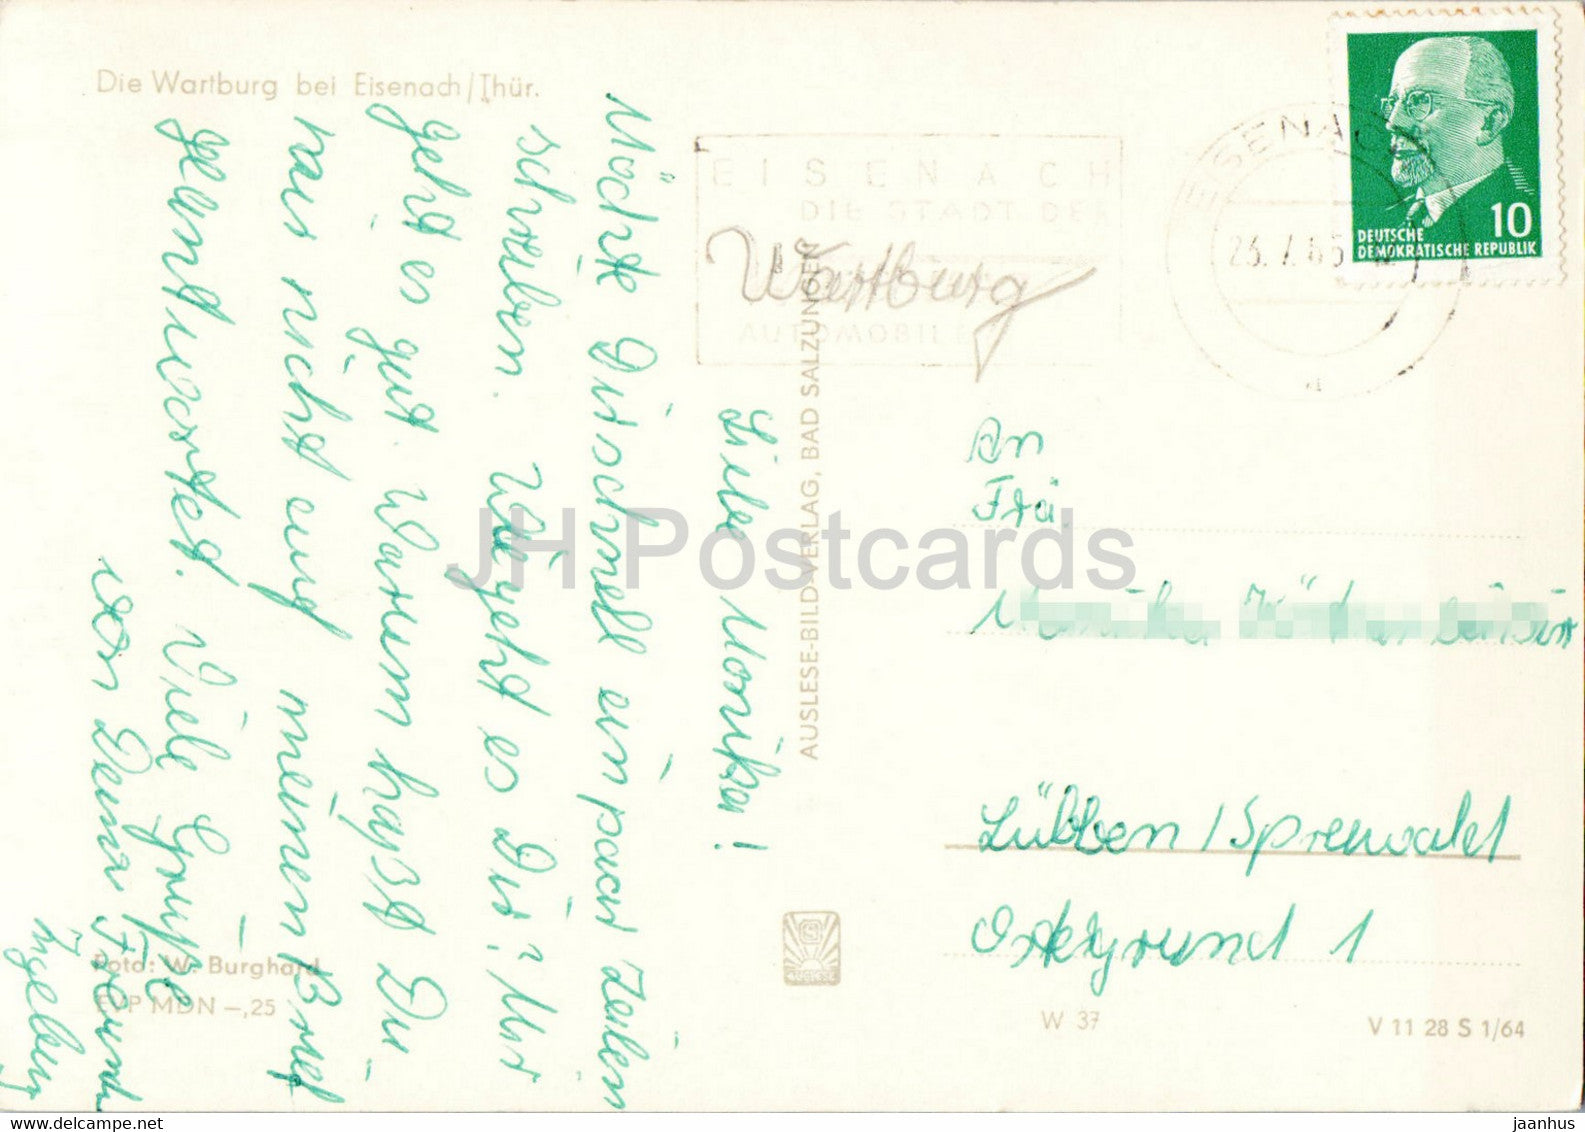 Die Wartburg bei Eisenach/Thür.
Liebe Monika!
Möchte Dir schnell ein paar Zeilen
schreiben. Wie geht es Dir? Mir
geht es gut. Warum hast Du
mir nicht auf meinen Brief
geantwortet. Viele Grüße
von Deiner Freundin
Ingeburg
Foto: W. Burghard
EVP MDN –,25
AUSLESE-BILD-VERLAG, BAD SALZUNGEN
EISENACH
DIE STADT DER
Wartburg
AUTOMOBILE
EISENACH
23.7.65
10
DEUTSCHE
DEMOKRATISCHE REPUBLIK
An
Frä.
Lübben/Spreewald
Ostergrund 1
W 37
V 11 28 S 1/64
JH Postcards
www.delcampe.net
jaanhus